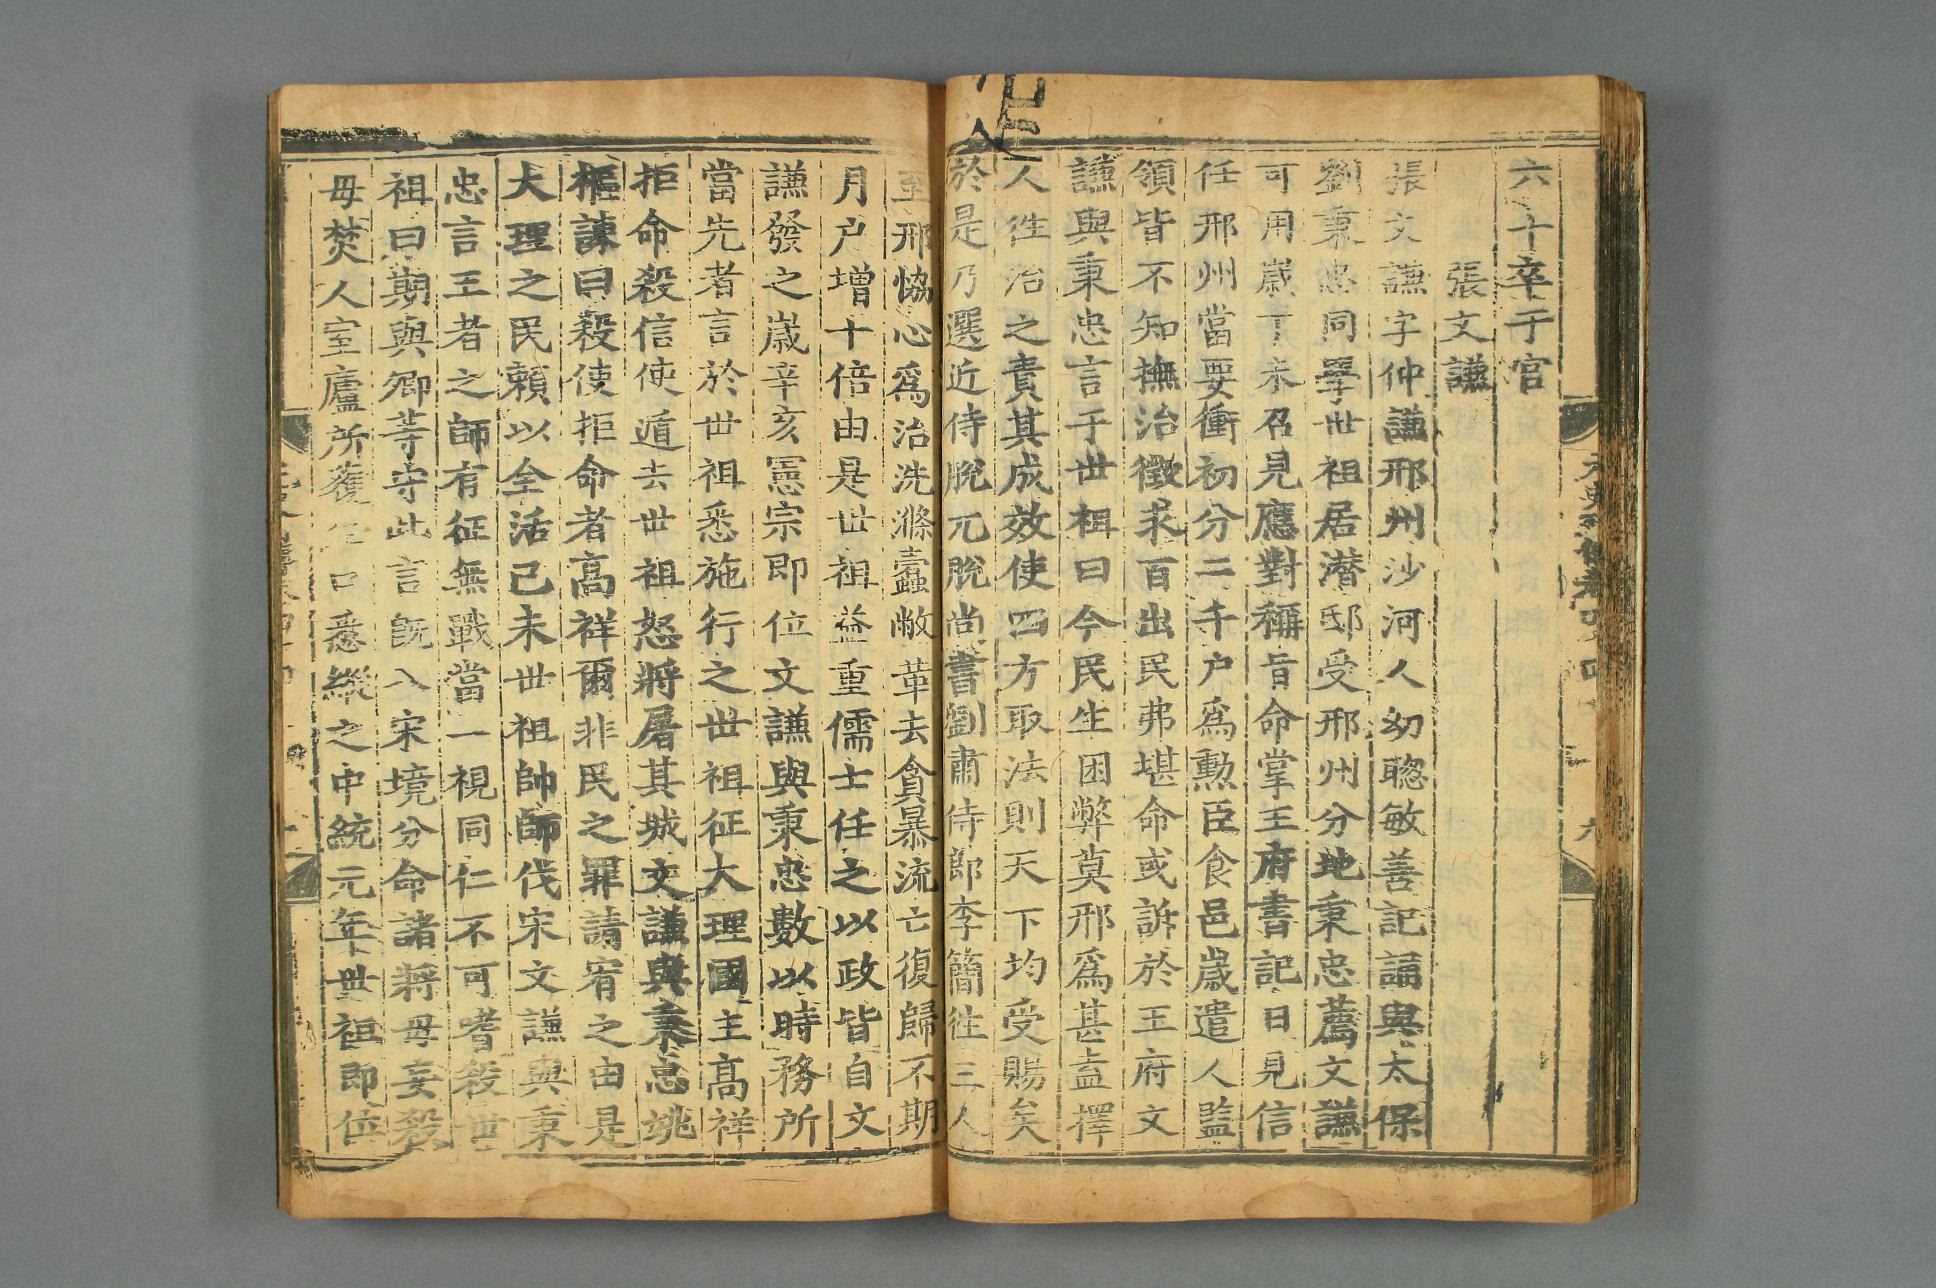 六十卒于官
張文謙
張文謙字仲謙邢州沙河人幼聰敏善記誦與太保
劉秉忠同學世祖居潜邸受邢州分地秉忠薦文謙
可用歲丁未召見應對稱旨命掌王府書記日見信
任邢州當要衝初分二千户爲勲臣食邑歲遣人監
領皆不知撫治徵求百出民弗堪命或訴於王府文
謙與秉忠言于世祖曰今民生困弊莫邢爲甚盍擇
人徃治之責其成效使四方取法則天下均受賜矣
於是乃選近侍脫兀脫尚書劉肅侍郎李簡徃三人
至邢恊心爲治洗滌蠹敝革去貪暴流亡復歸不期
月户增十倍由是世祖益重儒士任之以政皆自文
謙發之歲辛亥憲宗即位文謙與秉忠數以時務所
當先者言於世祖悉施行之世祖征大理國主高祥
拒命殺信使遁去世祖怒將屠其城文謙與秉忠姚
樞諫曰殺使拒命者高祥爾非民之罪請宥之由是
大理之民賴以全活己未世祖帥師伐宋文謙與秉
忠言王者之師有征無戰當一視同仁不可嗜殺世
祖曰期與卿等守此言既入宋境分命諸將毋妄殺
毋焚人室廬所獲生口悉縱之中統元年世祖即位